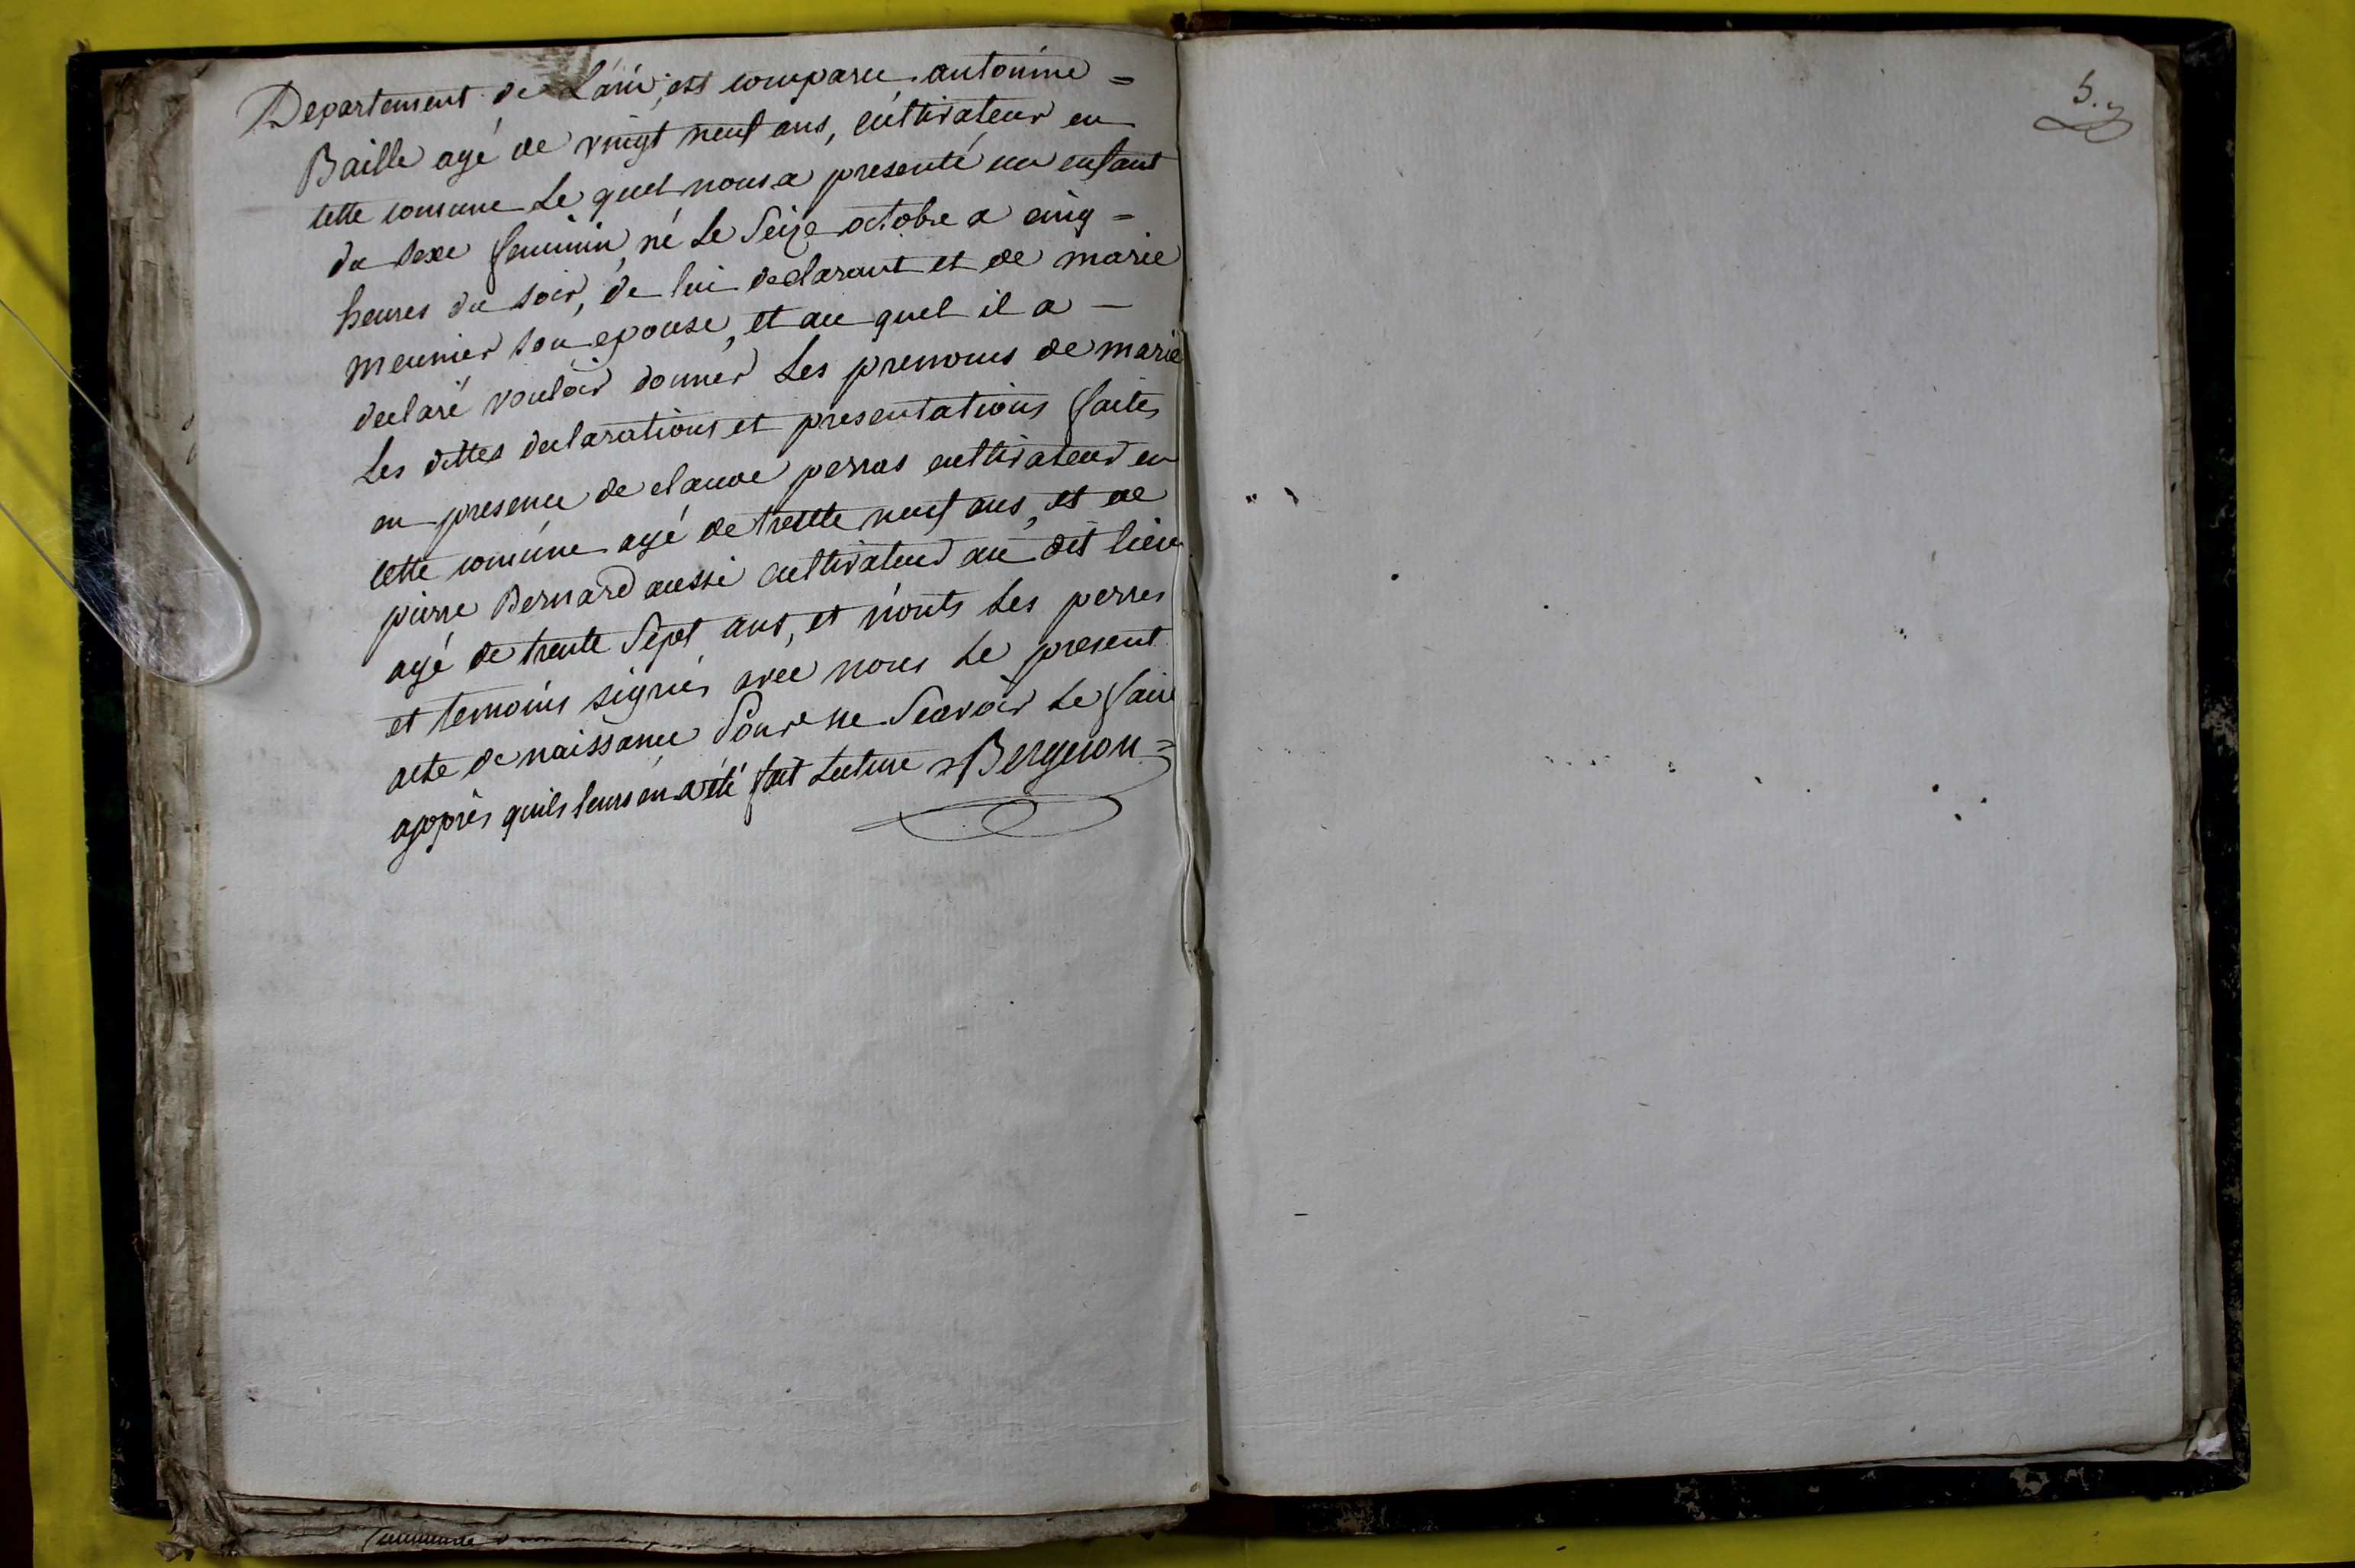 Departement de Lain, est comparu antoinne =
Baille agé de vingt neuf ans, cultivateur en
cette comune Le quel nous a presenté un enfant
du sexe feminin, né Le Seize octobre a cinq =
heures du soir, de lui declarant et de marie
meunier son epouse, et au quel il a —
declaré vouloir donner Les prenoms de marie
Les dittes declarations et presentations faites
en presence de claude perras cultivateur en
cette comune agé de trente neuf ans, et de
pierre Bernard aussi cultivateur au dit lieu
agé de trente Sept ans, et n'onts Les perres
et temoins signés avec nous Le present
acte de naissance Pour ne Scavoir Le faire
apprès quils leurs en a été fait Lecture Bergeron =
5.